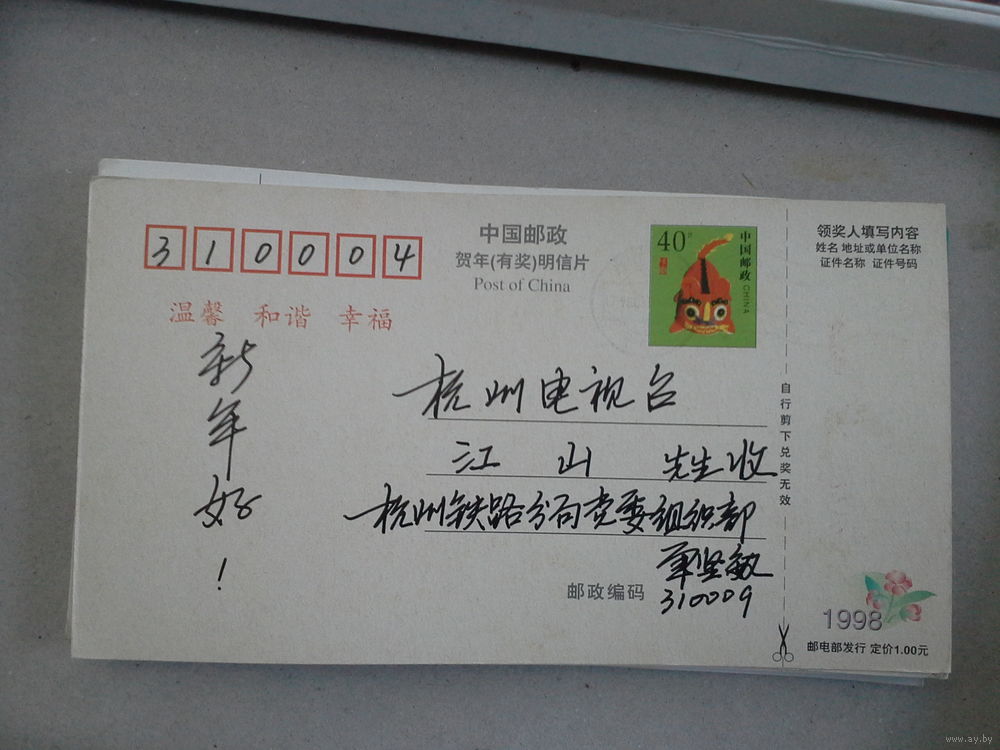 310004
中国邮政
贺年(有奖)明信片
Post of China
40分
中国邮政 CHINA
领奖人填写内容
姓名 地址或单位名称
证件名称 证件号码
温馨 和谐 幸福
新年好!
杭州电视台
江山 先生收
杭州铁路分局党委组织部
坚敏
邮政编码 310009
自行剪下兑奖无效
1998
邮电部发行 定价1.00元
www.ay.by